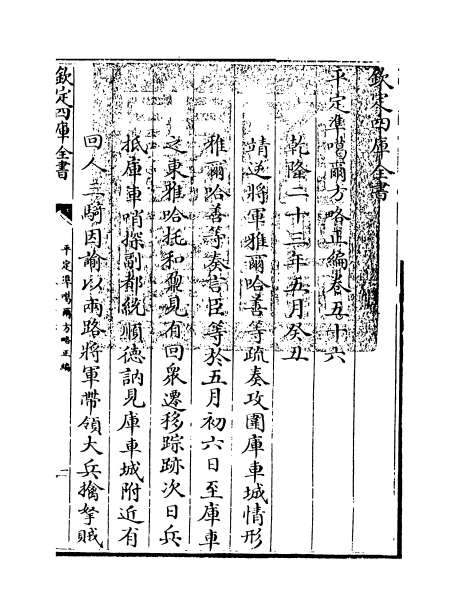 欽定四庫全書
平定準噶爾方略正編卷五十六
乾隆二十三年五月癸丑
靖逆將軍雅爾哈善等疏奏攻圍庫車城情形
雅爾哈善等奏言臣等於五月初六日至庫車
之東雅哈托和鼐見有回衆遷移踪跡次日兵
抵庫車哨探副都統順德訥見庫車城附近有
回人三騎因諭以兩路將軍帶領大兵擒拏賊
欽定四庫全書
平定準噶爾方略正編